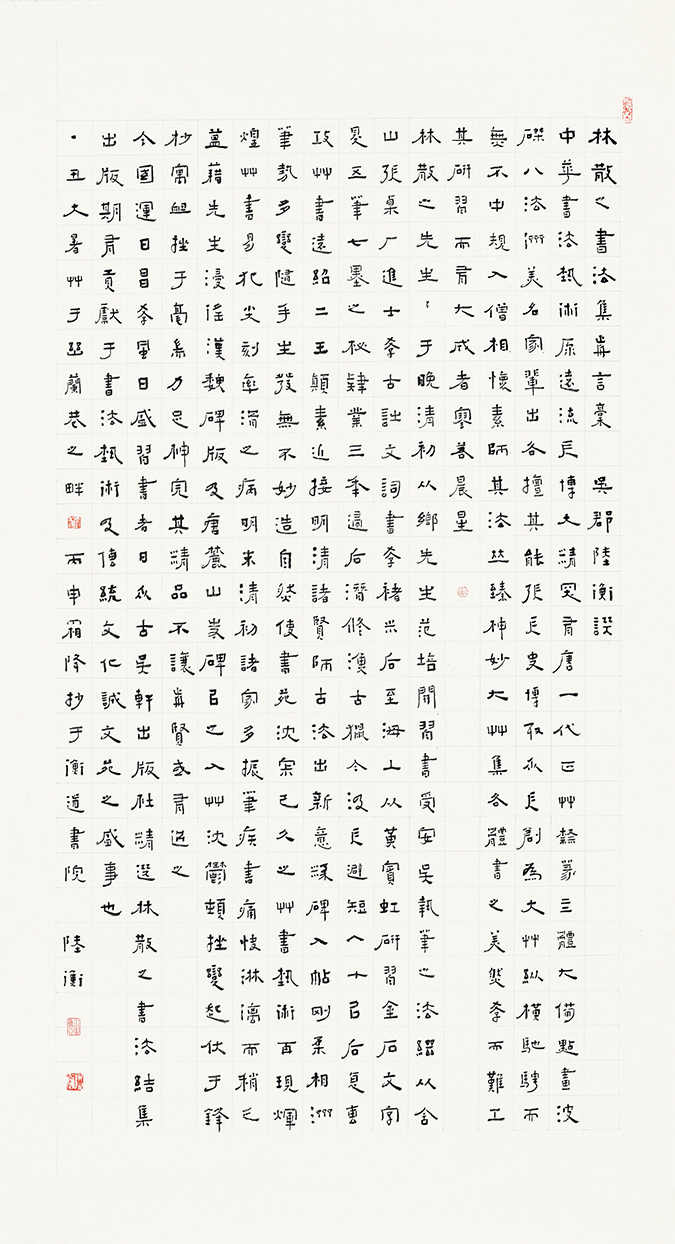 林散之書法集前言稾 吳郡陸衡譔
中華書法藝術原遠流長博大精突有唐一代正艸隸篆三體大備點畫波
磔八法濟美名家輩出各擅其能張長史博取眾長創為大艸縱橫馳騁而
無不中規入僧相懷素師其法竝臻神妙大艸集各體書之美然學而難工
其研習而有大成者寥若晨星
林散之先生〻于晚清初从鄉先生范培開習書受安吳執筆之法繼从含
山張栗厂進士學古詁文詞書學褚米后至海上从黃賓虹研習金石文字
及五筆七墨之秘肄業三年歸后潛修漁古獵今汲長避短八十㠯后息專
攻艸書遠紹二王顛素近接明清諸賢師古法出新意糅碑入帖剛柔相濟
筆勢多變隨手生發無不妙造自然使書苑沈寂已久之艸書藝術再現煇
煌艸書易犯尖刻率滑之病明末清初諸家多振筆疾書痛快淋漓而稍乏
蘊藉先生浸淫漢魏碑版及唐麓山寺碑㠯之入艸沈鬱頓挫變起伏于鋒
杪寓衄挫于毫耑力足神完其精品不讓前賢或有過之
今國運日昌學風日盛習書者日眾古吳軒出版社精選林散之書法結集
出版期有貢獻于書法藝術及傳統文化誠文苑之盛事也
丁丑大暑艸于幽蘭巷之畔 丙申霜降抄于衡道書院 陸衡